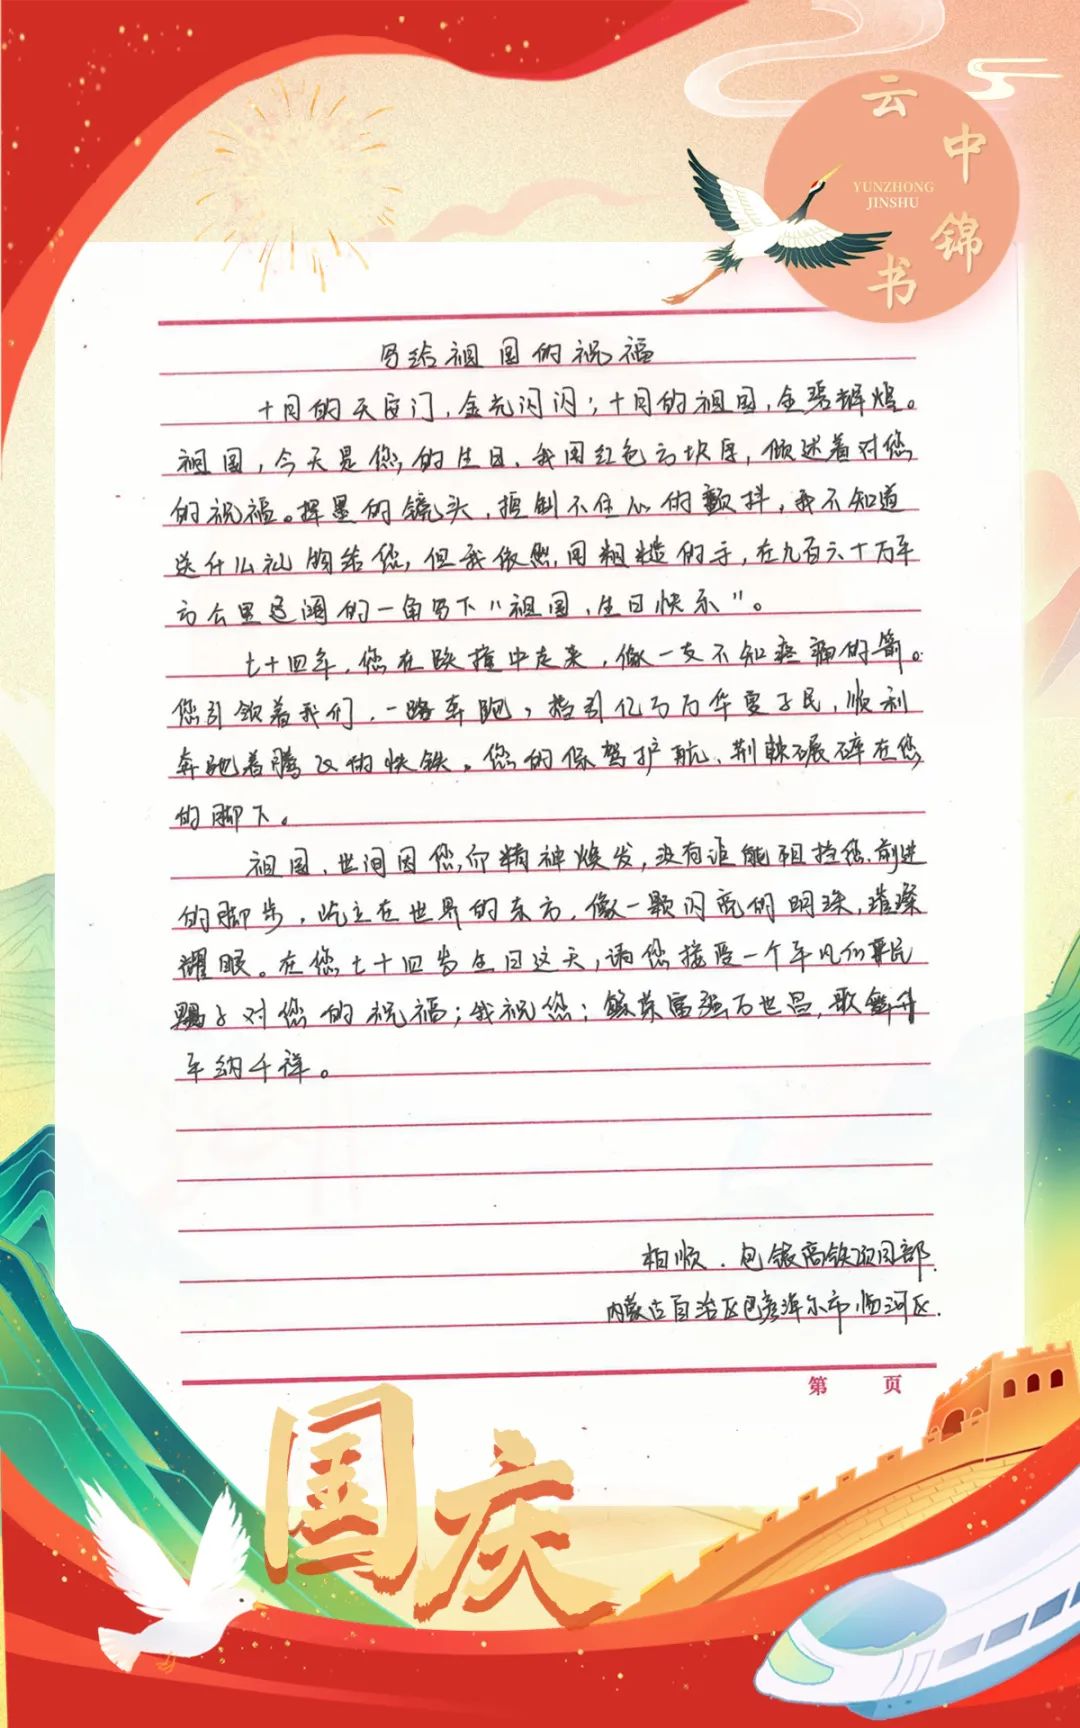 云中锦书
YUNZHONG
JINSHU
写给祖国的祝福
十月的天安门,金光闪闪;十月的祖国,全碧辉煌。
祖国,今天是您的生日、我用红色方块字,倾述着对您
的祝福。挥墨的镜头,控制不住心的颤抖,我不知道
送什么礼物给您,但我依然用粗糙的手,在九百六十万平
方公里辽阔的一角写下"祖国,生日快乐"。
七十四年,您在跌撞中走来,像一支不知疼痛的箭。
您引领着我们,一路奔跑,指引亿万万华夏子民,顺利
奔驰着腾飞的快铁。您的保驾护航、荆棘碾碎在您
的脚下。
祖国,世间因您而精神焕发,没有谁能阻挡您前进
的脚步,屹立在世界的东方,像一颗闪亮的明珠,璀璨
耀眼。在您七十四岁生日这天,请您接受一个平凡的
子对您的祝福;我祝您:繁荣富强万世昌,歌舞升
平纳千祥。
相顺.包银高铁项目部.
内蒙古自治区巴彦淖尔市临河区.
第 页
国庆